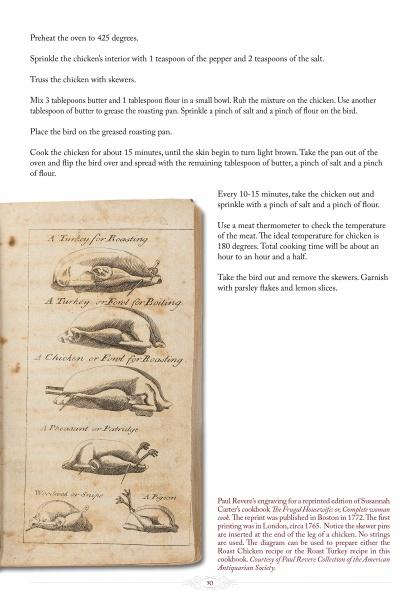 Preheat the oven to 425 degrees.
Sprinkle the chicken's interior with 1 teaspoon of the pepper and 2 teaspoons of the salt.
Truss the chicken with skewers.
Mix 3 tablepoons butter and 1 tablespoon flour in a small bowl. Rub the mixture on the chicken. Use another
tablespoon of butter to grease the roasting pan. Sprinkle a pinch of salt and a pinch of flour on the bird.
Place the bird on the greased roasting pan.
Cook the chicken for about 15 minutes, until the skin begin to turn light brown. Take the pan out of the
oven and flip the bird over and spread with the remaining tablespoon of butter, a pinch of salt and a pinch
of flour.
Every 10-15 minutes, take the chicken out and
sprinkle with a pinch of salt and a pinch of flour.
Use a meat thermometer to check the temperature
of the meat. The ideal temperature for chicken is
180 degrees. Total cooking time will be about an
hour to an hour and a half.
Take the bird out and remove the skewers. Garnish
with parsley flakes and lemon slices.
A Turkey for Roasting
A Turkey or Fowl for Boiling
A Chicken or Fowl for Roasting.
A Pheasant or Patridge
Woodcock or Snipe
A Pigeon
Paul Revere's engraving for a reprinted edition of Susannah
Carter's cookbook The Frugal Housewife: or, Complete woman
cook. The reprint was published in Boston in 1772. The first
printing was in London, circa 1765. Notice the skewer pins
are inserted at the end of the leg of a chicken. No strings
are used. The diagram can be used to prepare either the
Roast Chicken recipe or the Roast Turkey recipe in this
cookbook. Courtesy of Paul Revere Collection of the American
Antiquarian Society.
10